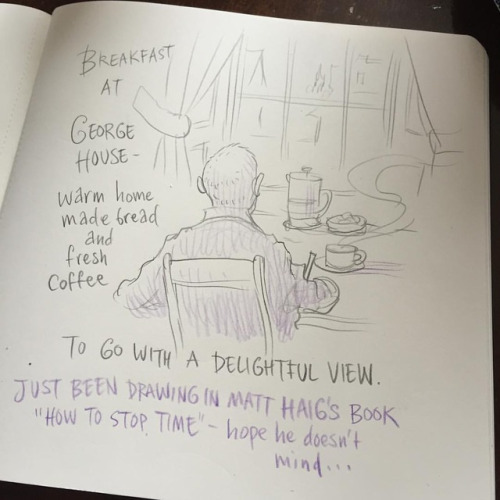 BREAKFAST
AT
GEORGE
HOUSE -
warm home
made bread
and
fresh
coffee
TO GO WITH A DELIGHTFUL VIEW.
JUST BEEN DRAWING IN MATT HAIG'S BOOK
"HOW TO STOP TIME" - hope he doesn't
mind...